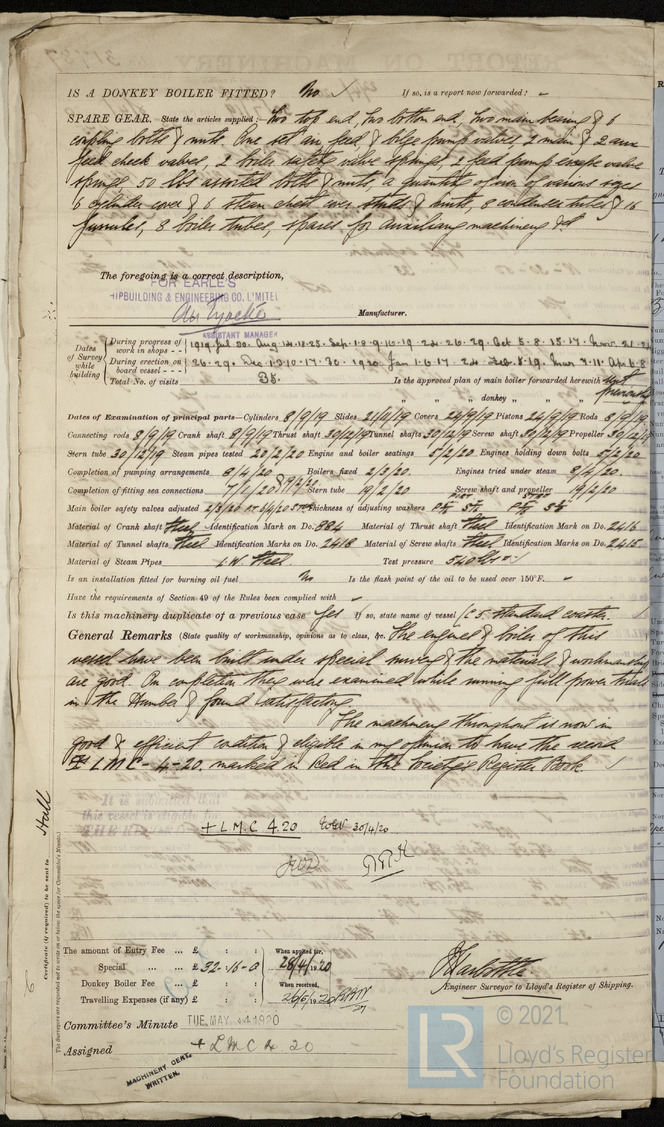 IS A DONKEY BOILER FITTED? No / If so, is a report now forwarded? –
SPARE GEAR. State the articles supplied:— Two top end, two bottom end, two main bearing & 6
coupling bolts & nuts. One set air, feed & bilge pump valves, 2 main & 2 aux
feed check valves, 2 boiler safety valve springs, 2 feed pump escape valve
springs, 50 lbs assorted bolts & nuts, a quantity of iron of various sizes
6 cylinder cover & 6 steam chest cover studs & nuts, 8 condenser tubes & 16
ferrules, 8 boiler tubes, spares for auxiliary machinery &c
The foregoing is a correct description,
FOR EARLE'S
SHIPBUILDING & ENGINEERING CO. LIMITED
Manufacturer.
ASSISTANT MANAGER
Dates of Survey while building
During progress of work in shops - - 1919 Jul 30. Aug 14.18.25. Sep. 1.8.9.10.19 24.26.29. Oct 3.8.15.17. Nov 21.24
During erection on board vessel - - - 26.29. Dec 1.3.10.17.30. 1920 Jan 1.6.17.24 Feb. 5.19. Mar 3.11. Apr 6.8
Total No. of visits 38. Is the approved plan of main boiler forwarded herewith
" " " donkey " "
Dates of Examination of principal parts—Cylinders 8/9/19 Slides 21/11/19 Covers 24/9/19 Pistons 24/9/19 Rods 8/9/19
Connecting rods 8/9/19 Crank shaft 8/9/19 Thrust shaft 30/12/19 Tunnel shafts 30/12/19 Screw shaft 30/12/19 Propeller 30/12/19
Stern tube 30/12/19 Steam pipes tested 20/2/20 Engine and boiler seatings 5/2/20 Engines holding down bolts 5/2/20
Completion of pumping arrangements 8/4/20 Boilers fixed 2/3/20. Engines tried under steam 8/4/20.
Completion of fitting sea connections 7/1/20 & 19/2/20 Stern tube 19/2/20 Screw shaft and propeller 19/2/20
Main boiler safety valves adjusted Thickness of adjusting washers
Material of Crank shaft Steel Identification Mark on Do. 884 Material of Thrust shaft Steel Identification Mark on Do. 2416
Material of Tunnel shafts Steel Identification Marks on Do. 2418 Material of Screw shafts Steel Identification Marks on Do. 2415
Material of Steam Pipes L.W. Steel. Test pressure 540 lbs
Is an installation fitted for burning oil fuel No Is the flash point of the oil to be used over 150°F. –
Have the requirements of Section 49 of the Rules been complied with –
Is this machinery duplicate of a previous case Yes If so, state name of vessel "C" standard coaster.
General Remarks (State quality of workmanship, opinions as to class, &c. The engines & boiler of this
vessel have been built under special survey & the materials & workmanship
are good. On completion they were examined while running full power trials
in the Humber & found satisfactory.
The machinery throughout is now in
good & efficient condition & eligible in my opinion to have the record
+ LMC - 4-20. marked in Red in the Society's Register Book. /
It is submitted that
this vessel is eligible for
THE RECORD
+ L M C 4.20 30/4/20
Hull
Certificate (if required) to be sent to
The Surveyors are requested not to write on or below the space for Committee's Minute.
The amount of Entry Fee ... £ : :
Special ... ... £ 32-16-0
Donkey Boiler Fee ... £ : :
Travelling Expenses (if any) £ : :
When applied for, 28/4/1920
When received, 26/5/1920
Engineer Surveyor to Lloyd's Register of Shipping.
Committee's Minute TUE. MAY 4 1920
Assigned + L M C 4 20
MACHINERY CERT.
WRITTEN.
LR
© 2021
Lloyd's Register
Foundation